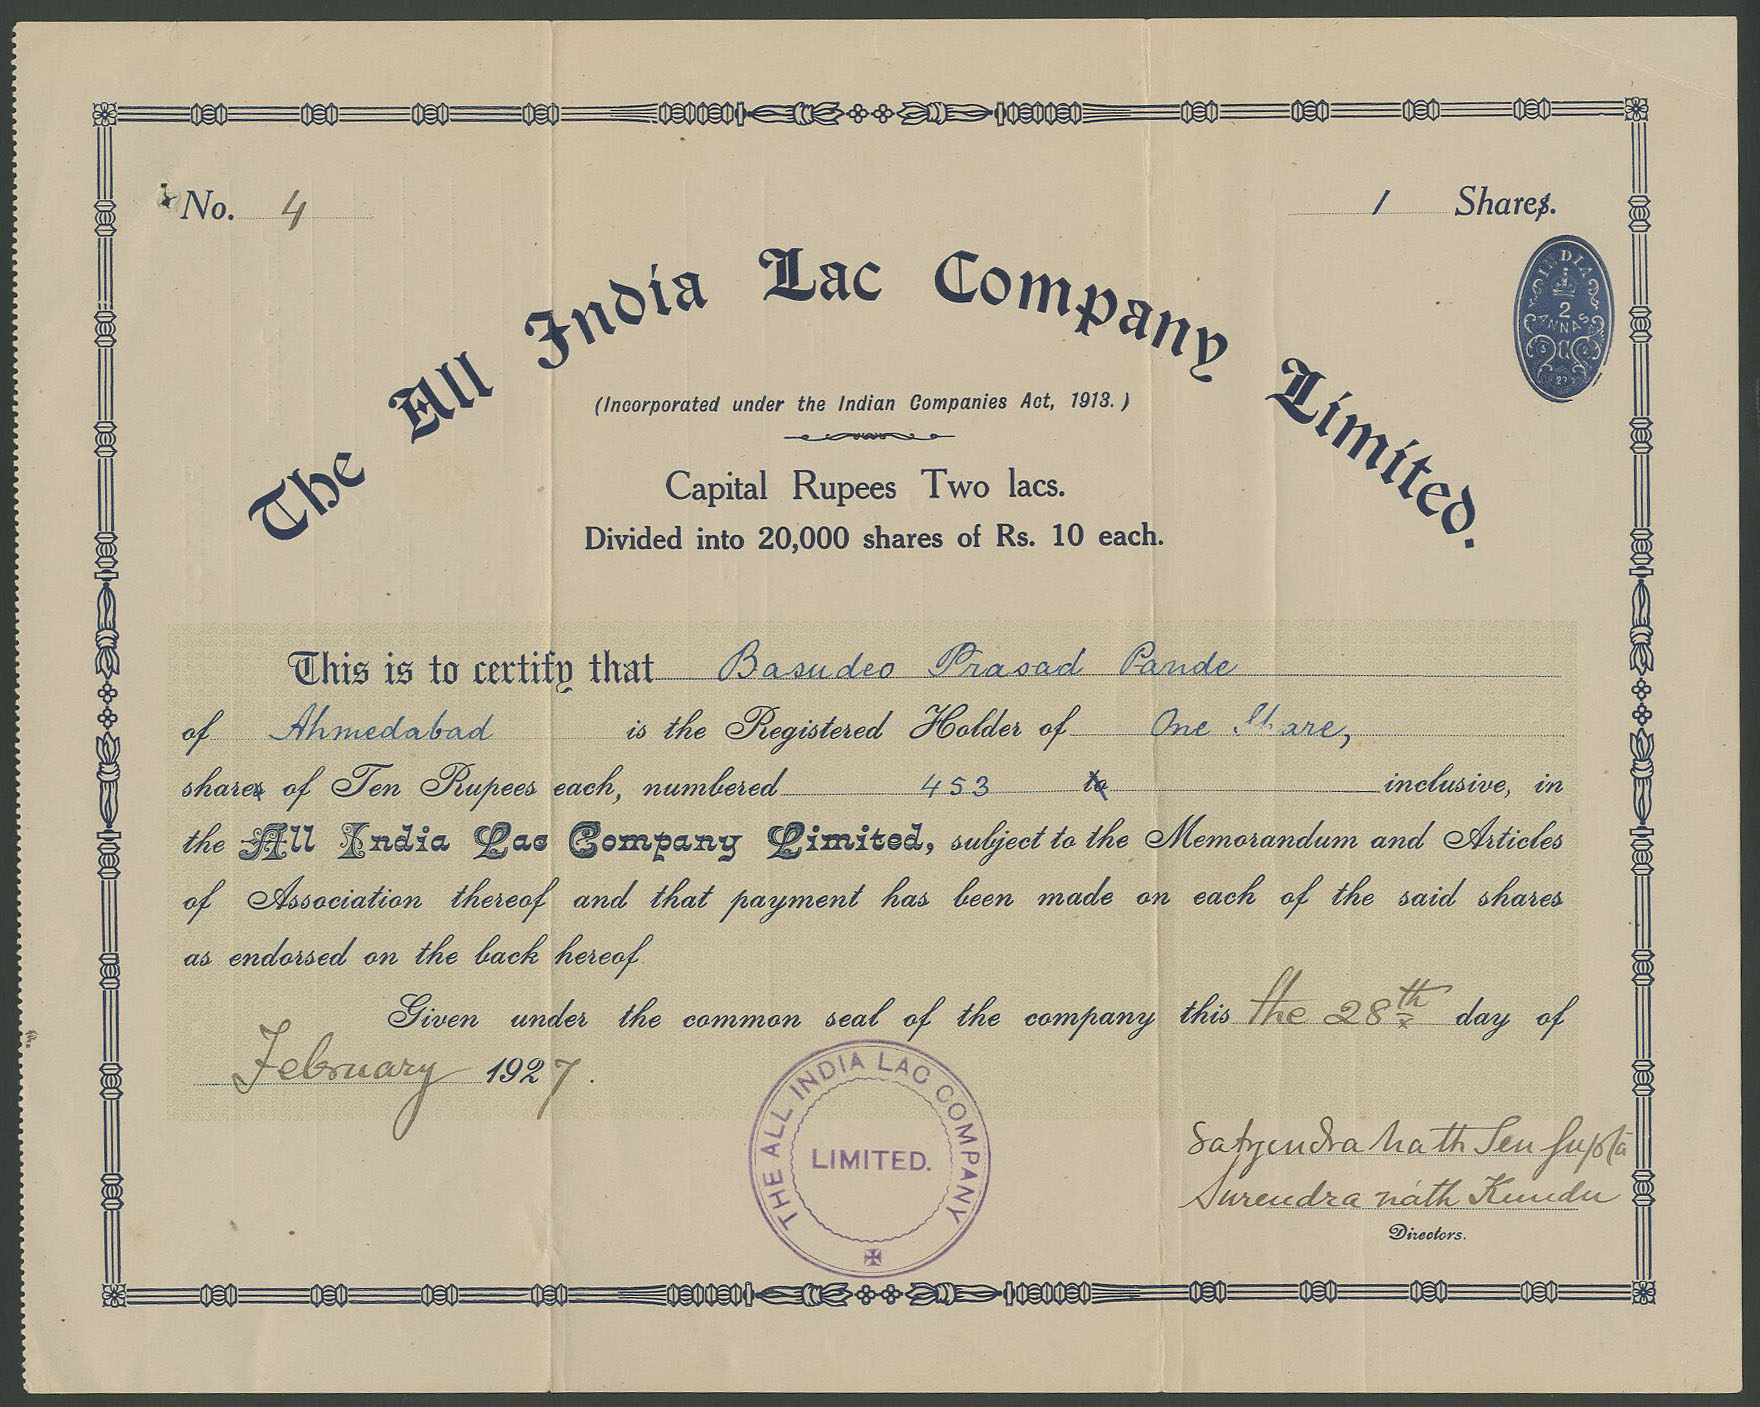 No. 4
1 Shares.
The All India Lac Company Limited.
INDIA
2
ANNAS
(Incorporated under the Indian Companies Act, 1913.)
Capital Rupees Two lacs.
Divided into 20,000 shares of Rs. 10 each.
This is to certify that Basudeo Prasad Pande
of Ahmedabad is the Registered Holder of One Share,
shares of Ten Rupees each, numbered 453 to inclusive, in
the All India Lac Company Limited, subject to the Memorandum and Articles
of Association thereof and that payment has been made on each of the said shares
as endorsed on the back hereof
Given under the common seal of the company this the 28th day of
February 1927.
THE ALL INDIA LAC COMPANY
LIMITED.
Satyendra Nath Sen Gupta
Surendra nath Kundu
Directors.